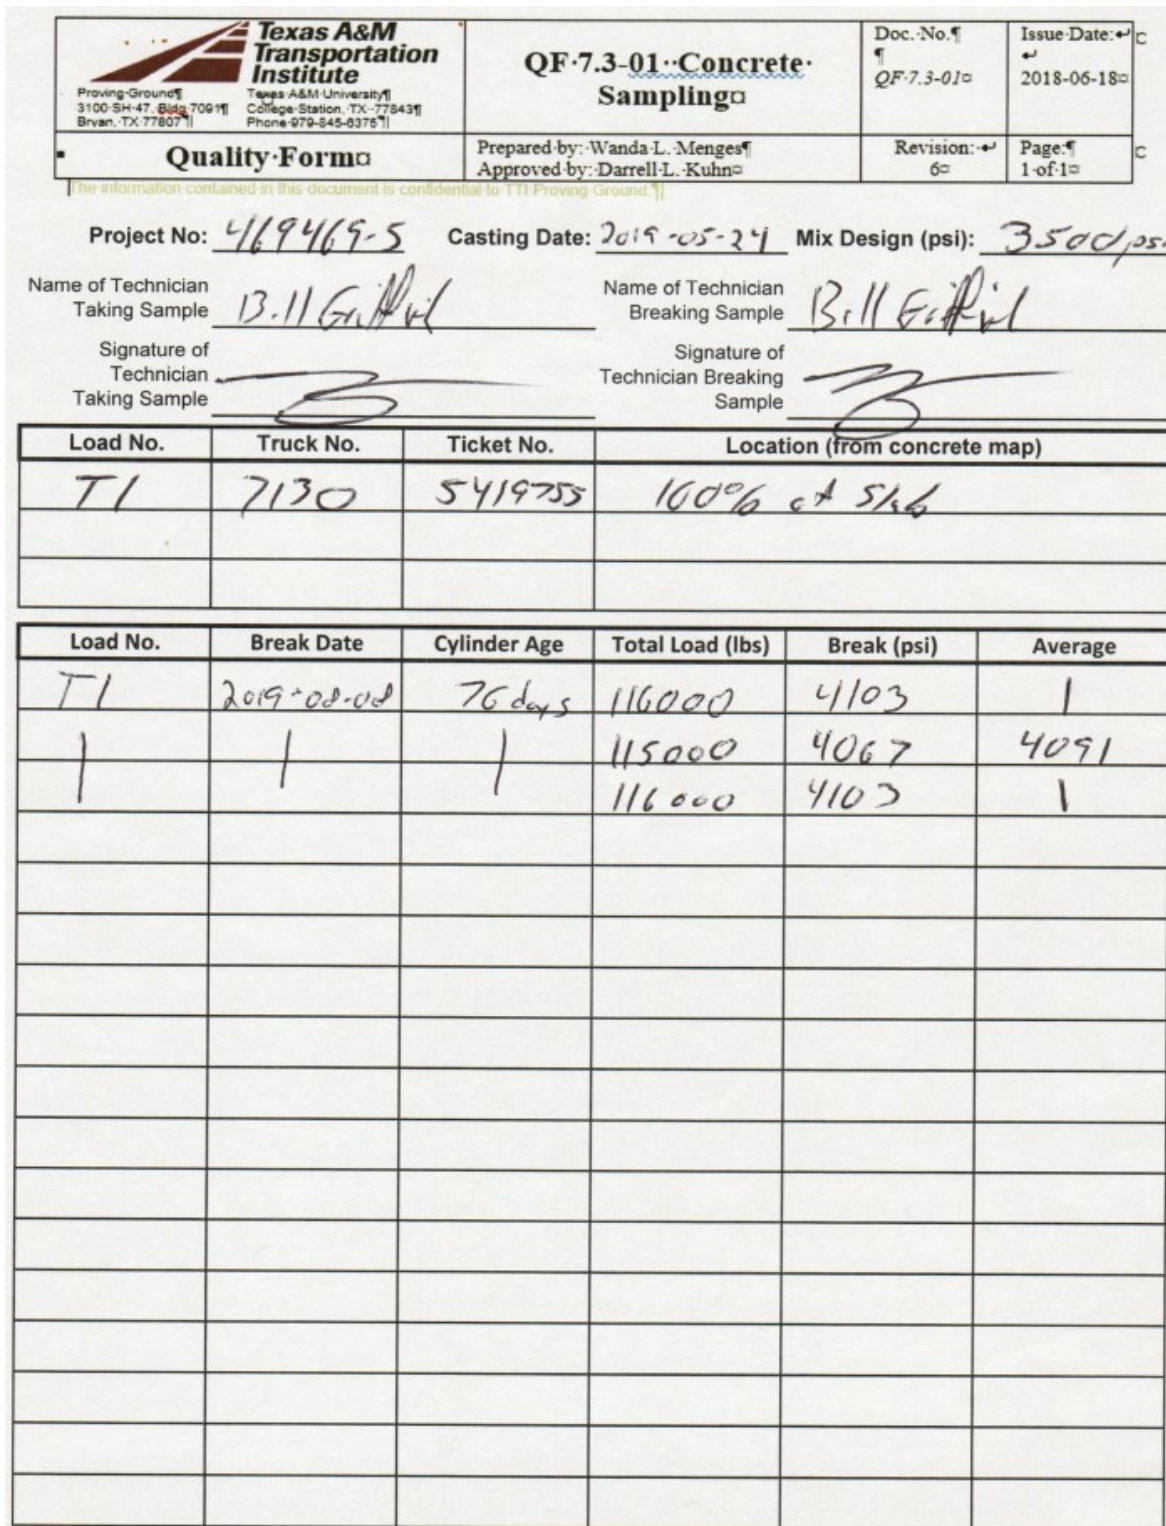 Texas A&M
Transportation
Institute
Proving·Ground¶
3100·SH·47,·Bldg·7091¶
Bryan,·TX·77807¶
Texas·A&M·University¶
College·Station,·TX··77843¶
Phone·979-845-6375¶
QF·7.3-01··Concrete·
Sampling¤
Doc.·No.¶
¶
QF·7.3-01¤
Issue·Date:↵
↵
2018-06-18¤
Quality·Form¤
Prepared·by:·Wanda·L.·Menges¶
Approved·by:·Darrell·L.·Kuhn¤
Revision:·↵
6¤
Page:¶
1·of·1¤
The·information·contained·in·this·document·is·confidential·to·TTI·Proving·Ground.¶
Project No: 469469-5 Casting Date: 2019-05-24 Mix Design (psi): 3500 psi
Name of Technician
Taking Sample Bill Griffith
Name of Technician
Breaking Sample Bill Griffith
Signature of
Technician
Taking Sample
Signature of
Technician Breaking
Sample
Load No. Truck No. Ticket No. Location (from concrete map)
T1 7130 5419755 100% of Slab
Load No. Break Date Cylinder Age Total Load (lbs) Break (psi) Average
T1 2019-08-08 76 days 116000 4103
115000 4067 4091
116000 4103